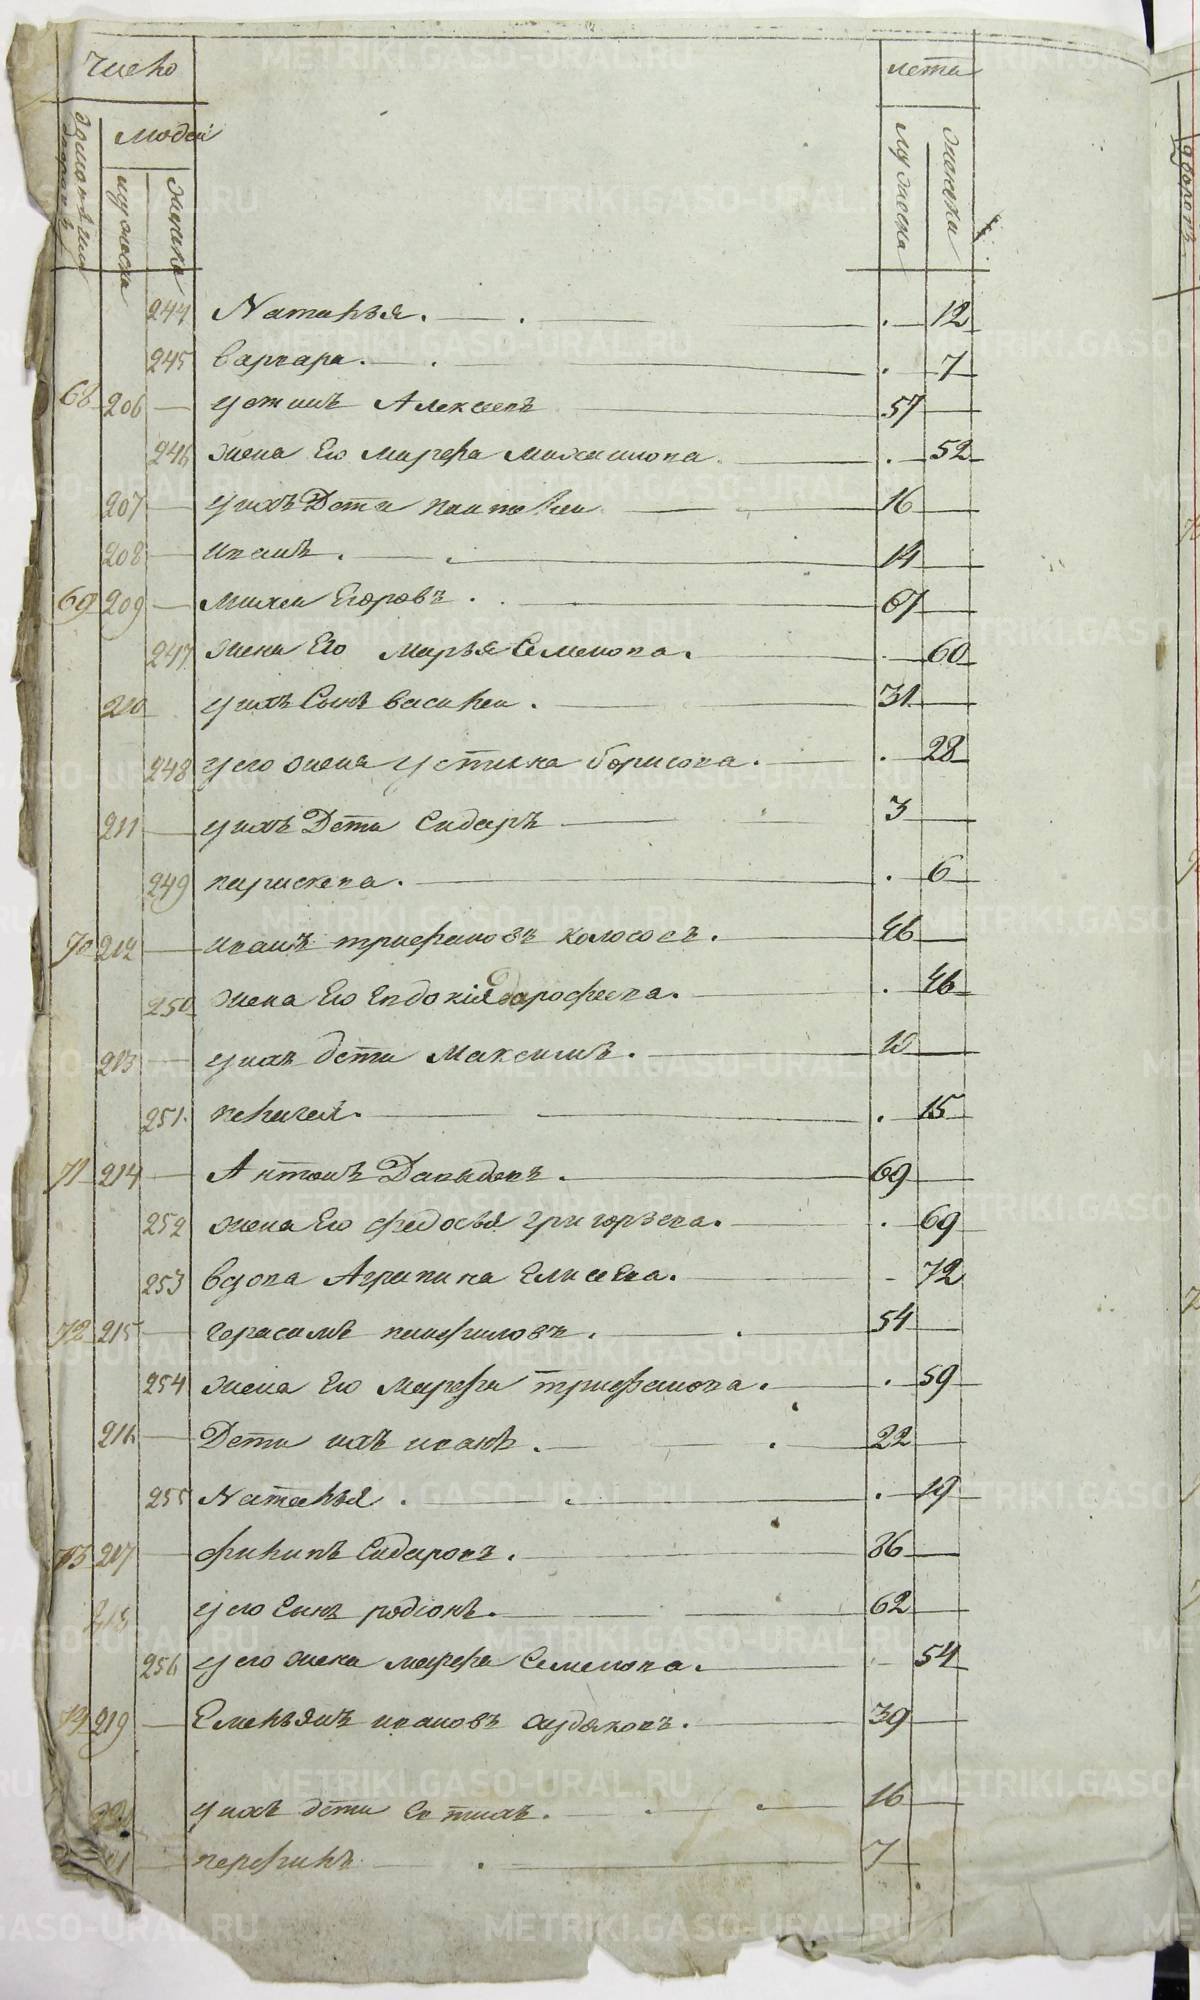 Число
лета
людей
мужеска
женска
мужеска
женска
244 Наталья. 12
245 Варвара. 7
68 206 Устинъ Алексеевъ 57
246 жена Ево Марфа Михаилова. 52
207 у ихъ Дети Пантелеи 16
208 Иванъ. 14
69 209 Михеи Егоровъ. 67
247 жена Ево Марья Семенова. 60
210 у ихъ Сынъ Василеи. 31
248 у его жена Устинья борисова. 28
211 у ихъ Дети Сидаръ 3
249 параскева. 6
70 212 Иванъ трифановъ колосовъ. 46
250 жена Ево Евдокія дарофеева. 46
213 у ихъ дети Максимъ. 10
251. пелагея. 15
71 214 Антонъ Давыдовъ. 69
252 жена Ево федосья григорьева. 69
253 вдова Агрипина Елисеева. 72
72 215 герасимъ панфиловъ. 54
254 жена Ево Марфа трифанова. 59
216 Дети ихъ иванъ. 22
255 Наталья. 19
73 217 филипъ Сидаровъ. 86
218 у его Сынъ родіонъ. 62
256 у его жена марфа Семенова. 54
74 219 Емельянъ ивановъ 39
у ихъ дети 16
перфилъ 7
METRIKI.GASO-URAL.RU